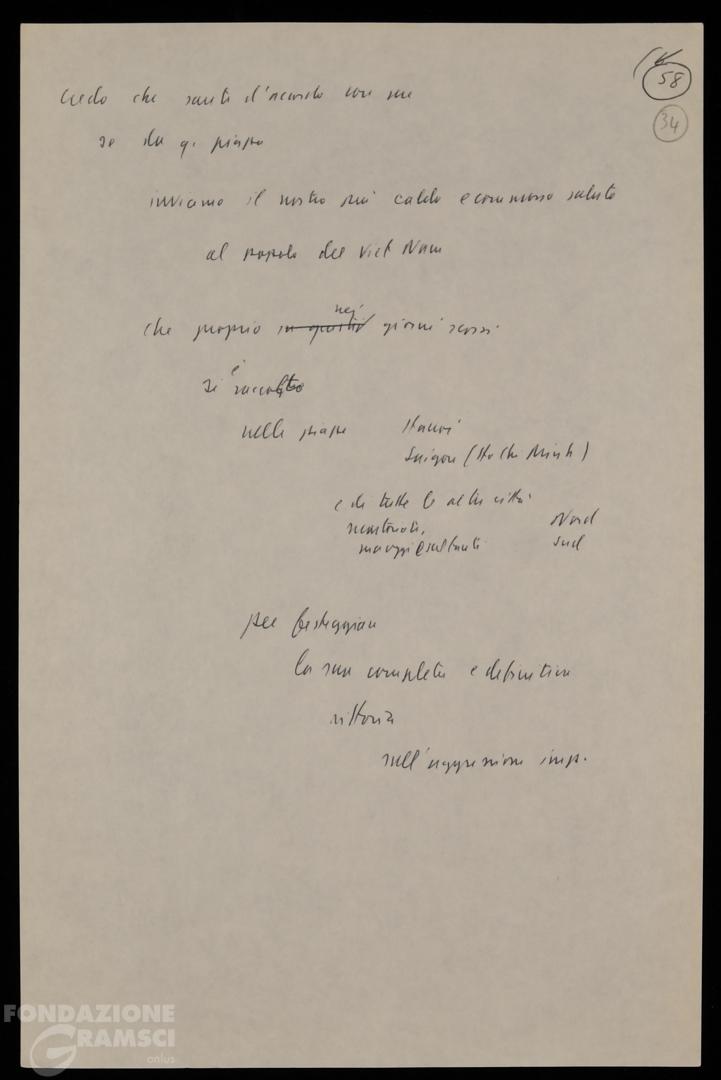 58
34
credo che sarete d'accordo con me
se da q. piazza
inviamo il nostro più caldo e commosso saluto
al popolo del Viet Nam
che proprio in questi nei giorni scorsi
si è raccolto
nelle piazze Hanoi
Saigon (Ho Chi Minh)
e di tutte le altre città
Nord
ma oggi esultanti Sud
per festeggiare
la sua completa e definitiva
vittoria
sull'aggressione imp.
FONDAZIONE
GRAMSCI
onlus